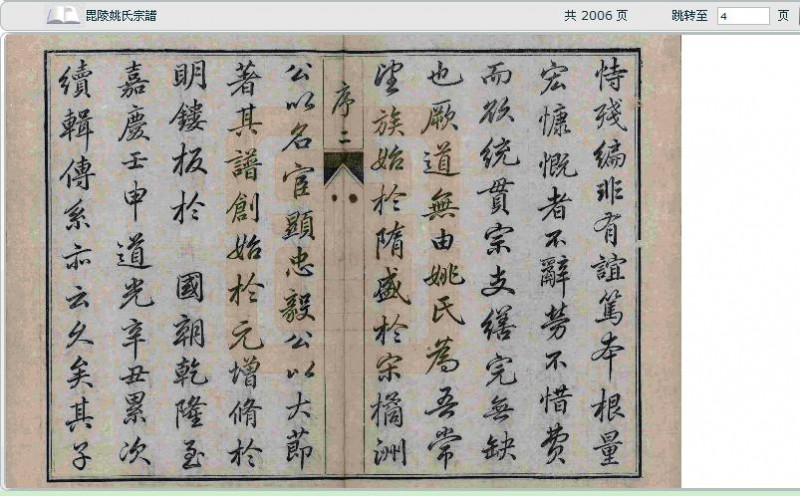 毘陵姚氏宗譜 共 2006 页 跳转至 4 页
恃殘編非有誼篤本根量
宏慷慨者不辭勞不惜費
而欲統貫宗支繕完無缺
也厥道無由姚氏為吾常
望族始於隋盛於宋橘洲
序二
公以名宦顯忠毅公以大節
著其譜創始於元增脩於
明鏤板於 國朝乾隆至
嘉慶壬申道光辛丑累次
續輯傳系亦云久矣其子